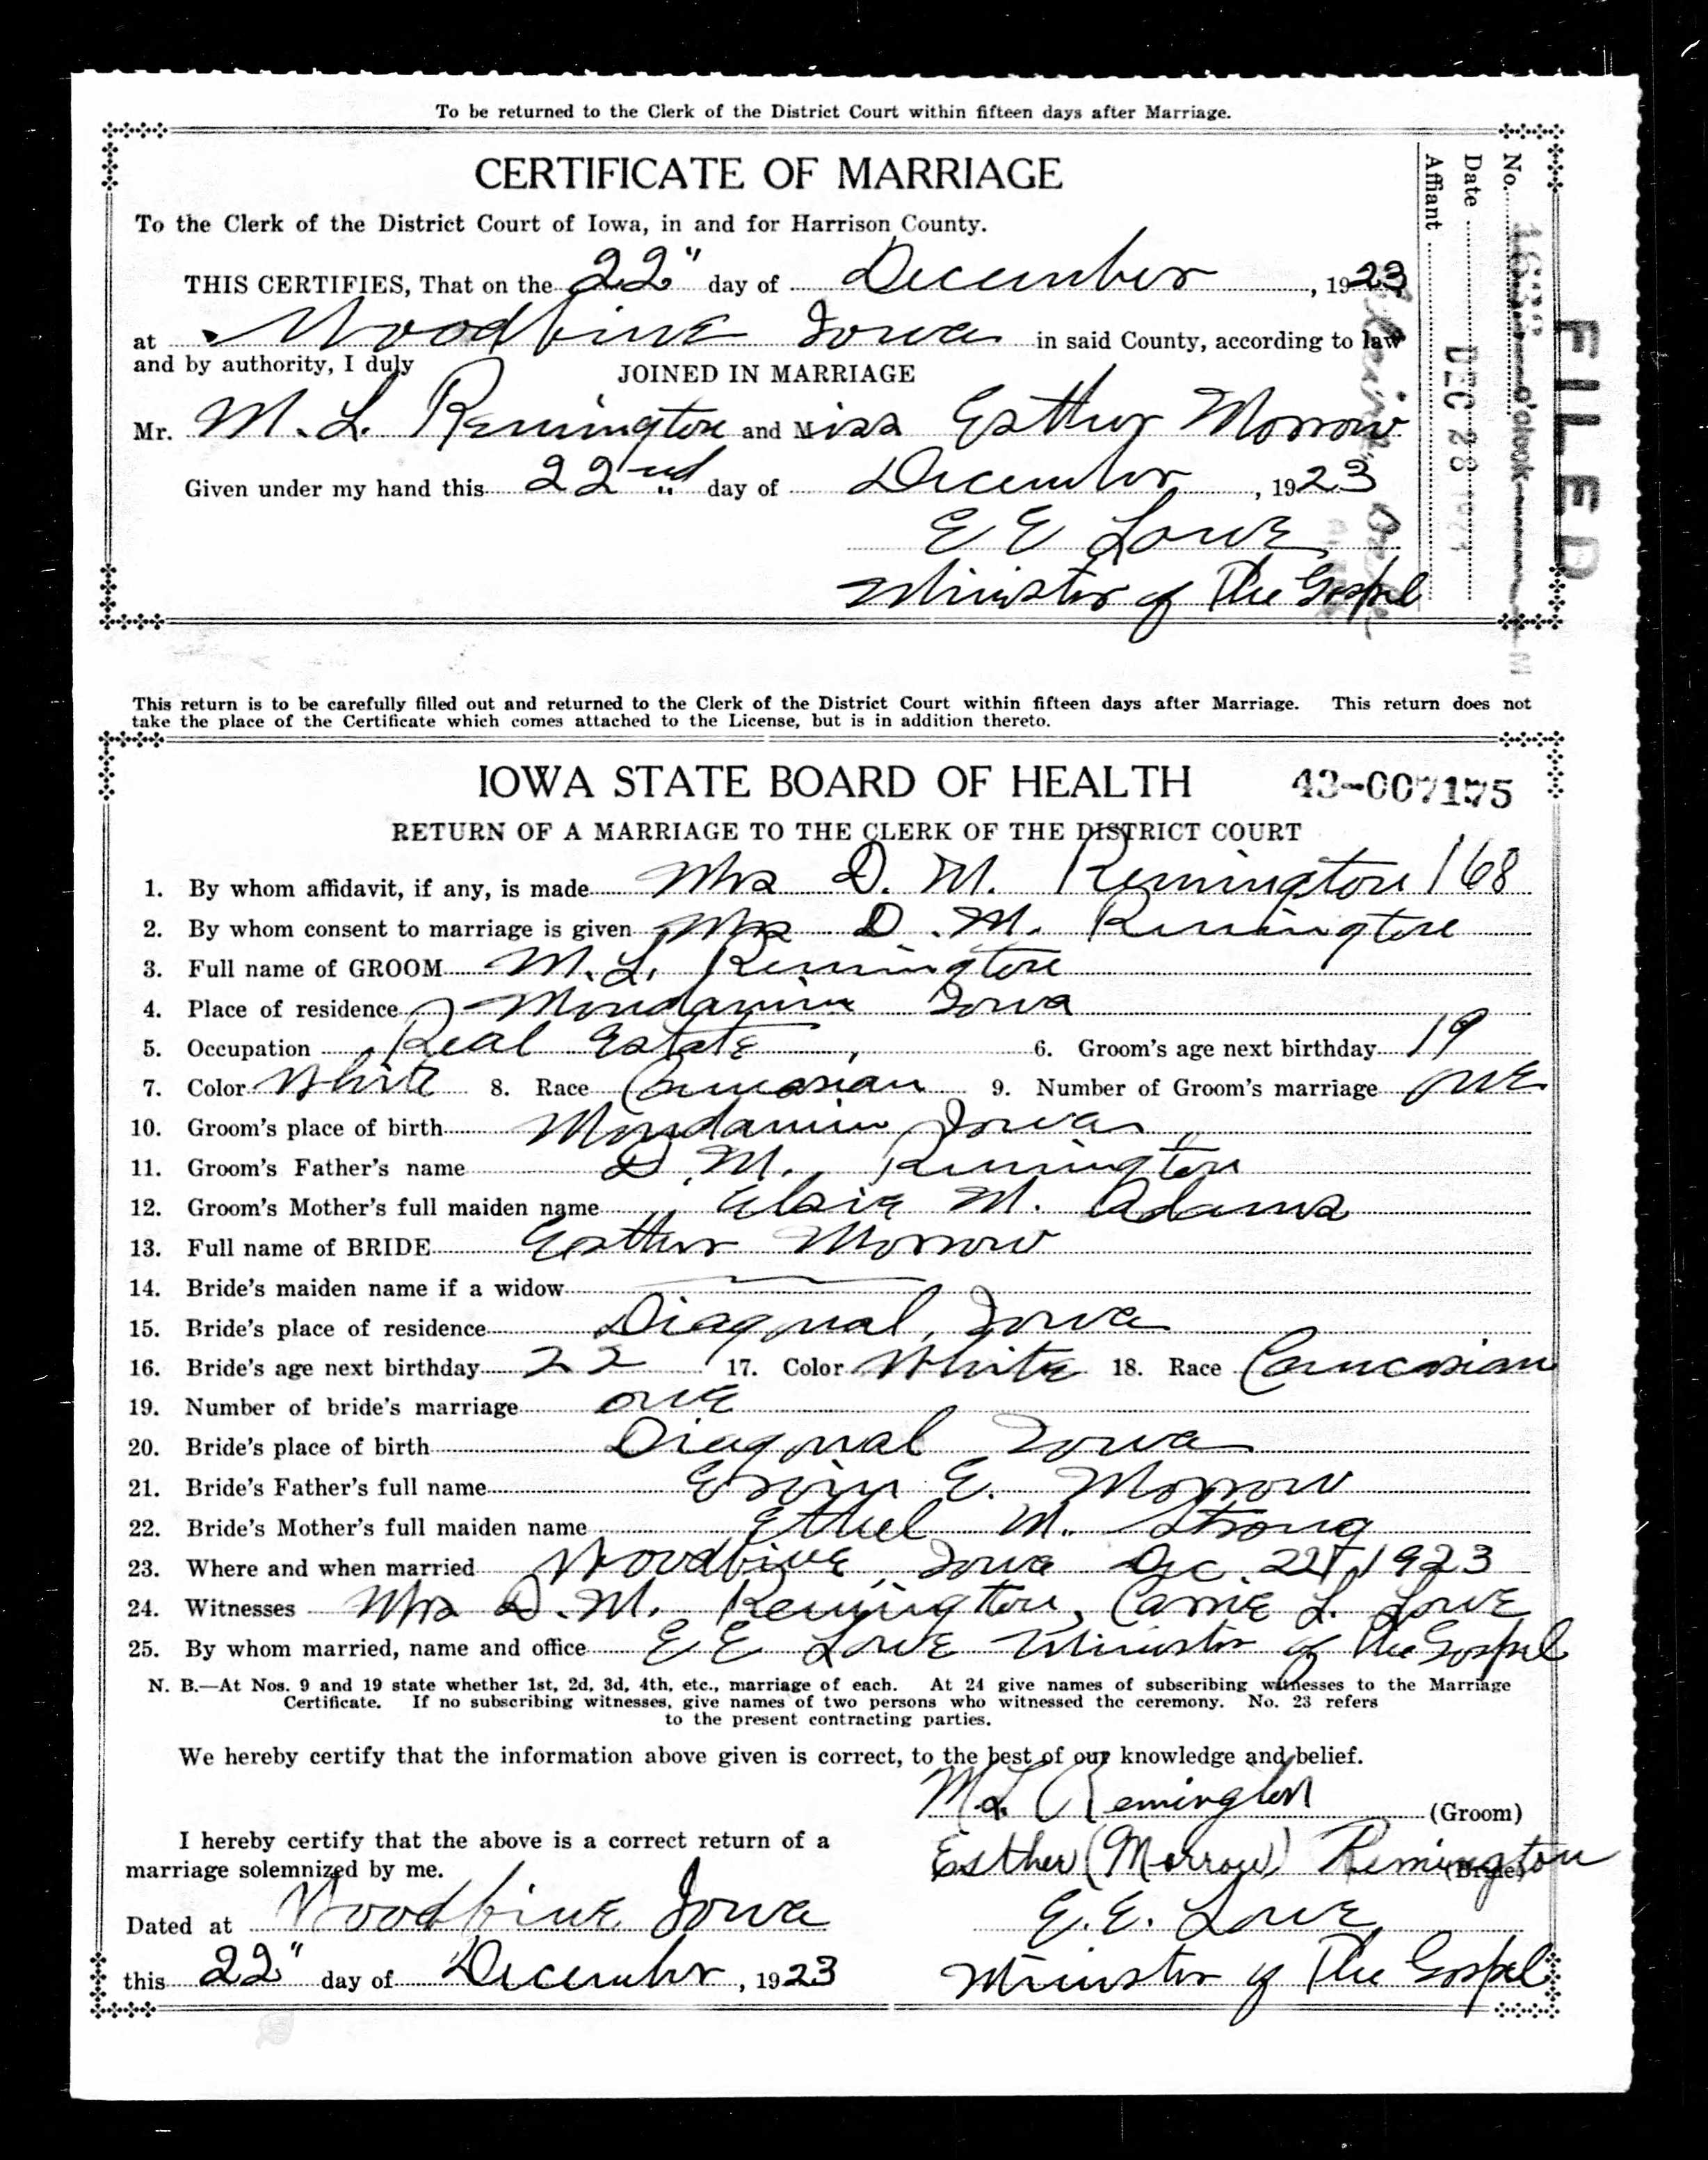 To be returned to the Clerk of the District Court within fifteen days after Marriage.
CERTIFICATE OF MARRIAGE
To the Clerk of the District Court of Iowa, in and for Harrison County.
THIS CERTIFIES, That on the 22" day of December, 1923
at Woodbine Iowa in said County, according to law
and by authority, I duly
JOINED IN MARRIAGE
Mr. M. L. Remington and Miss Esther Morrow
Given under my hand this 22nd day of December, 1923
E E Lowe
Minister of The Gospel
No.
Date DEC 28
Affiant
FILED
o'clock
This return is to be carefully filled out and returned to the Clerk of the District Court within fifteen days after Marriage. This return does not
take the place of the Certificate which comes attached to the License, but is in addition thereto.
IOWA STATE BOARD OF HEALTH 43-007175
RETURN OF A MARRIAGE TO THE CLERK OF THE DISTRICT COURT
1. By whom affidavit, if any, is made Mrs D. M. Remington 168
2. By whom consent to marriage is given Mrs D. M. Remington
3. Full name of GROOM M. L. Remington
4. Place of residence Mondamin Iowa
5. Occupation Real Estate 6. Groom's age next birthday 19
7. Color White 8. Race Caucasian 9. Number of Groom's marriage one
10. Groom's place of birth Mondamin Iowa
11. Groom's Father's name D. M. Remington
12. Groom's Mother's full maiden name Elsie M. Adams
13. Full name of BRIDE Esther Morrow
14. Bride's maiden name if a widow
15. Bride's place of residence Diagonal, Iowa
16. Bride's age next birthday 22 17. Color White 18. Race Caucasian
19. Number of bride's marriage one
20. Bride's place of birth Diagonal Iowa
21. Bride's Father's full name Ervin E. Morrow
22. Bride's Mother's full maiden name Ethel M. Strong
23. Where and when married Woodbine, Iowa Dec. 22, 1923
24. Witnesses Mrs D. M. Remington, Carrie L. Lowe
25. By whom married, name and office E E Lowe Minister of The Gospel
N. B.—At Nos. 9 and 19 state whether 1st, 2d, 3d, 4th, etc., marriage of each. At 24 give names of subscribing witnesses to the Marriage
Certificate. If no subscribing witnesses, give names of two persons who witnessed the ceremony. No. 23 refers
to the present contracting parties.
We hereby certify that the information above given is correct, to the best of our knowledge and belief.
M. L. Remington (Groom)
I hereby certify that the above is a correct return of a
marriage solemnized by me.
Esther (Morrow) Remington (Bride)
Dated at Woodbine Iowa E. E. Lowe
this 22" day of December, 1923 Minister of The Gospel